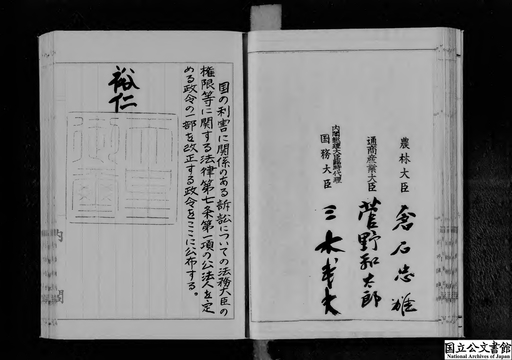 農林大臣
倉石忠雄
通商産業大臣
菅野和太郎
内閣総理大臣臨時代理
国務大臣
三木武夫
国の利害に関係のある訴訟についての法務大臣の
権限等に関する法律第七条第一項の公法人を定
める政令の一部を改正する政令をここに公布する。
裕仁
内閣
国立公文書館
National Archives of Japan